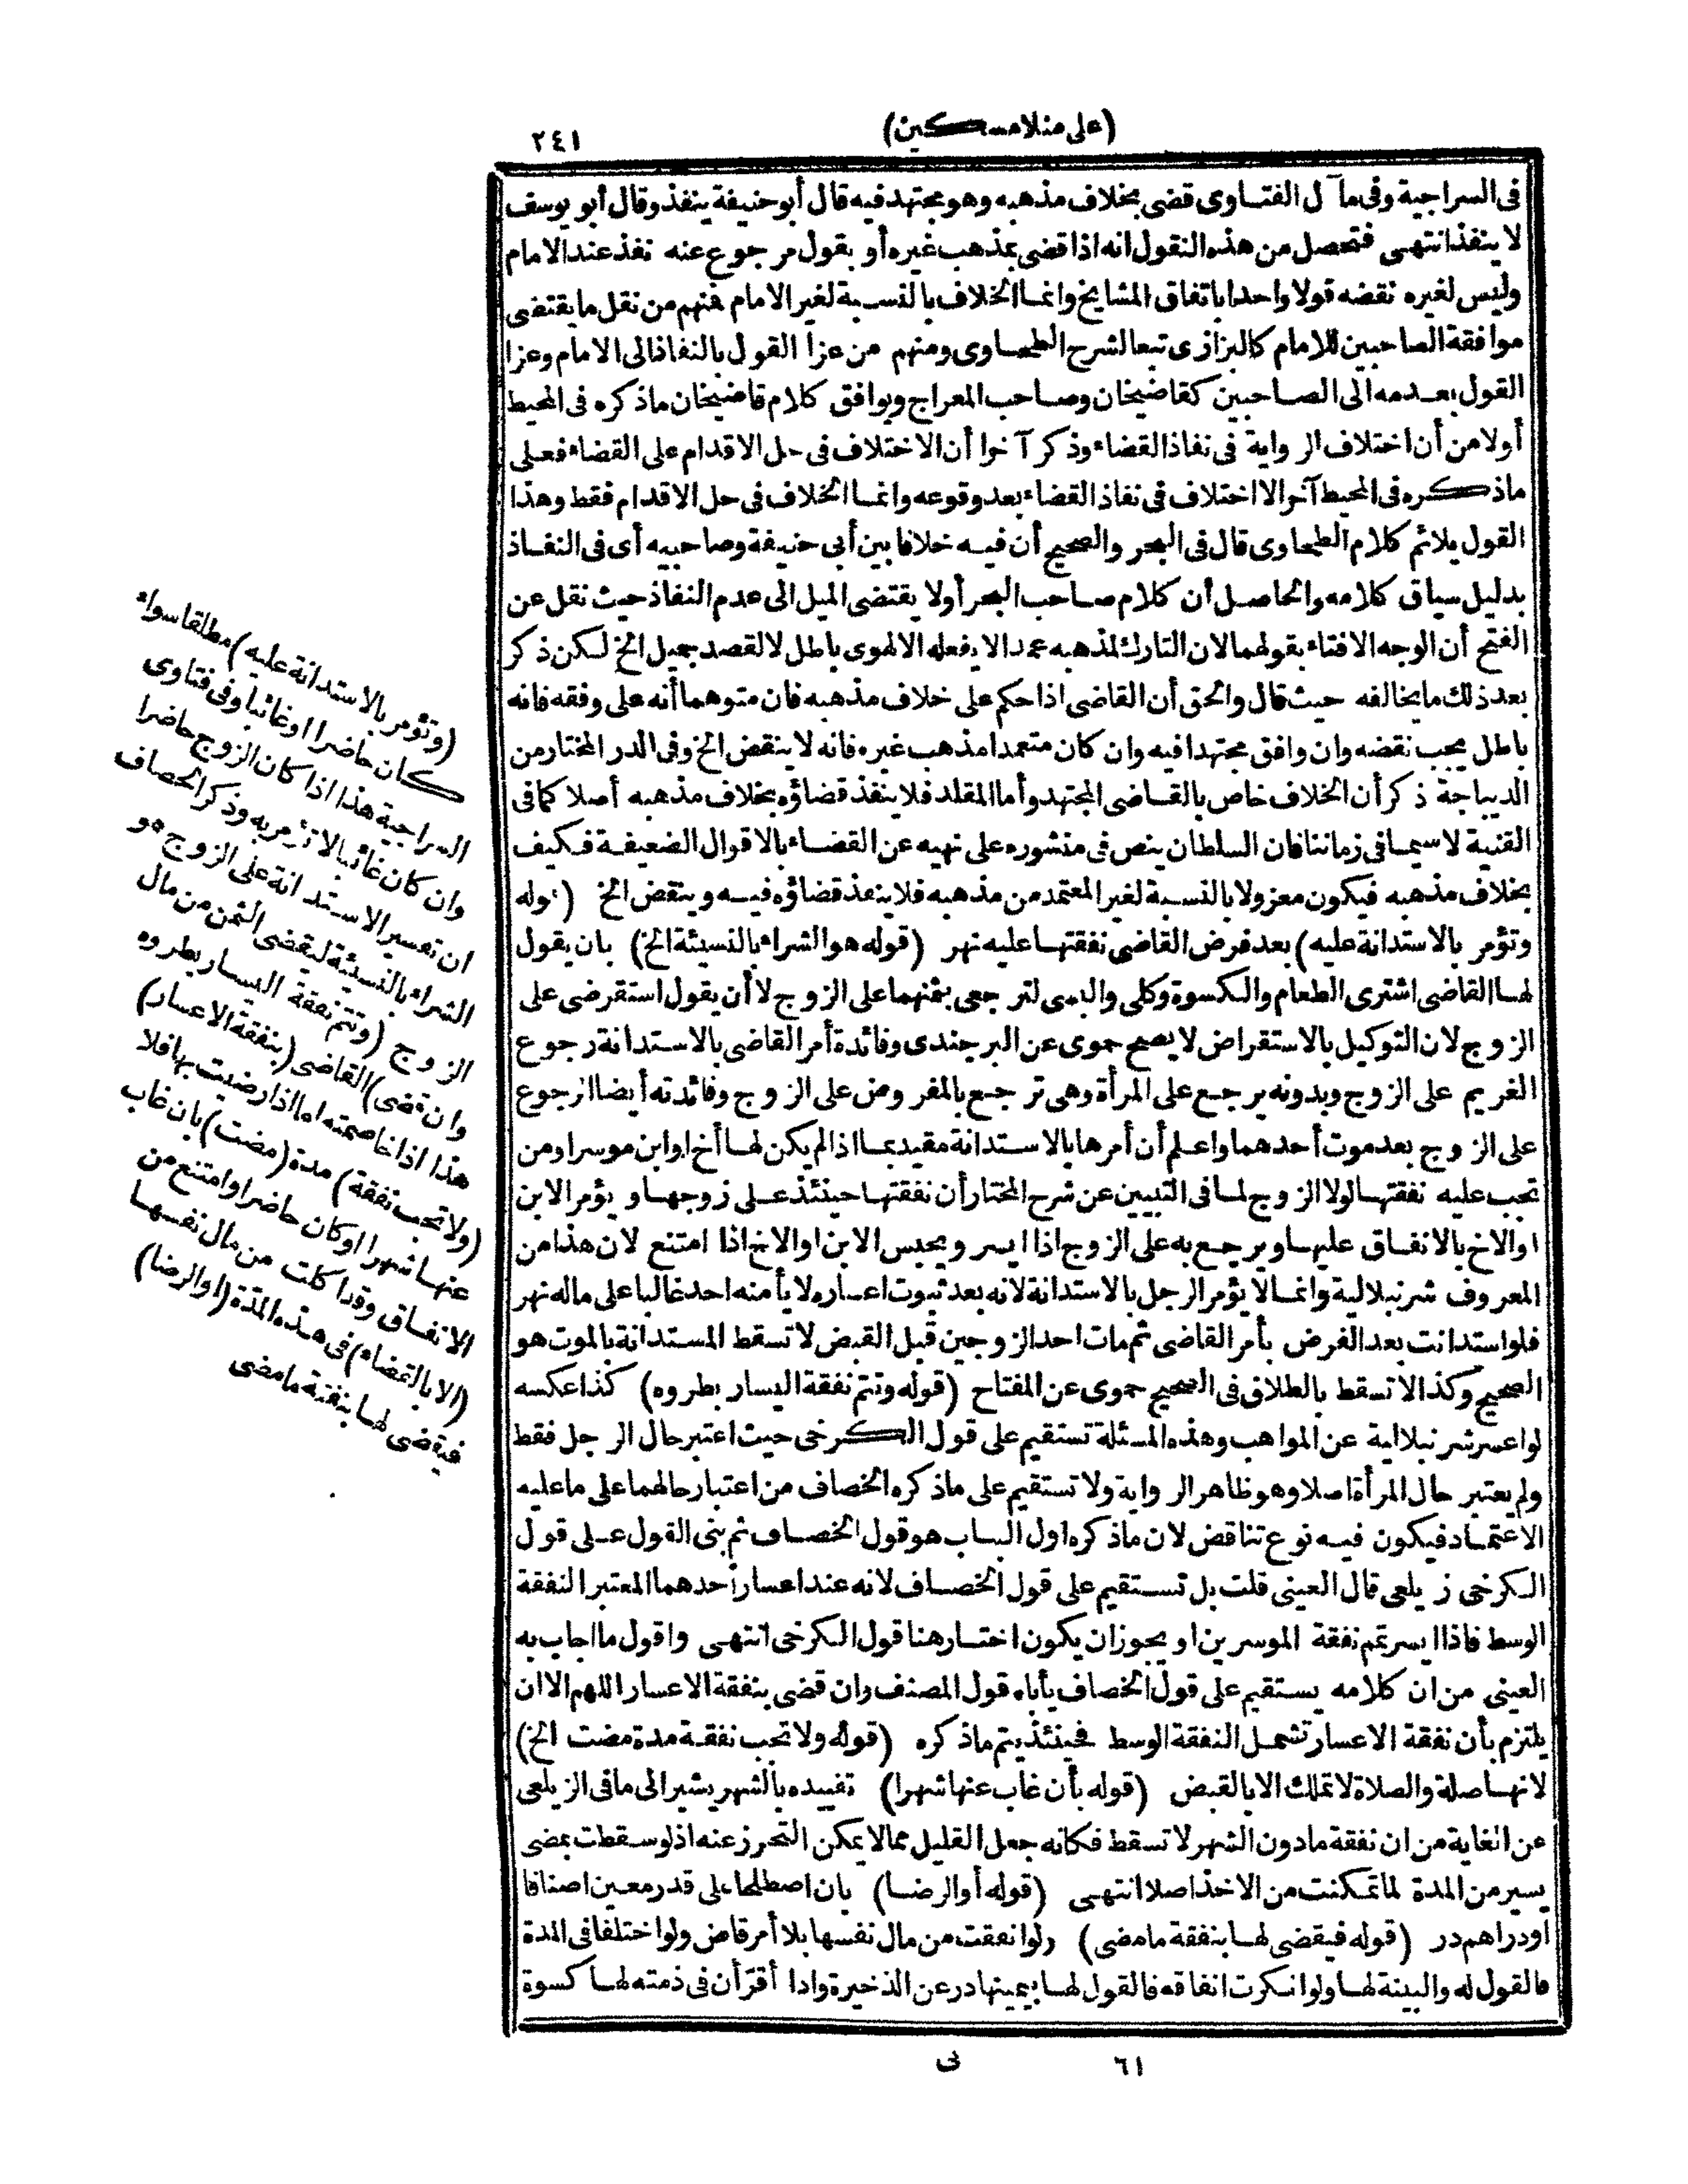 (على منلا مسكين)
٢٤١
فى السراجية وفى مآ ل الفتاوى قضى بخلاف مذهبه وهو مجتهد فيه قال أبو حنيفة ينفذ وقال أبو يوسف
لا ينفذ انتهى فتحصل من هذه النقول انه اذا قضى بمذهب غيره أو بقول مرجوع عنه نفذ عند الامام
وليس لغيره نقضه قولا واحدا باتفاق المشايخ وانما الخلاف بالنسبة لغير الامام فنهم من نقل ما يقتضى
موافقة الصاحبين للامام كالبزازى تبعا لشرح الطحاوى ومنهم من عزا القول بالنفاذ الى الامام وعزا
القول بعدمه الى الصاحبين كقاضيخان وصاحب المعراج ويوافق كلام قاضيخان ماذكره فى المحيط
أولا من أن اختلاف الرواية فى نفاذ القضاء وذكر آخرا أن الاختلاف فى حل الاقدام على القضاء فعلى
ماذكره فى المحيط آخرا لا اختلاف فى نفاذ القضاء بعد وقوعه وانما الخلاف فى حل الاقدام فقط وهذا
القول يلائم كلام الطحاوى قال فى البحر والصحيح أن فيه خلافا بين أبى حنيفة وصاحبيه أى فى النفاذ
بدليل سياق كلامه والحاصل أن كلام صاحب البحر أولا يقتضى الميل الى عدم النفاذ حيث نقل عن
الفتح أن الوجه الافتاء بقولهما لان التارك لمذهبه عمدا لا يفعله الا لهوى باطل لا لقصد جميل الخ لكن ذكر
بعد ذلك ما يخالفه حيث قال والحق أن القاضى اذا حكم على خلاف مذهبه فان متوهما أنه على وفقه فانه
باطل يجب نقضه وان وافق مجتهدا فيه وان كان متعمدا مذهب غيره فانه لا ينقض الخ وفى الدر المختار من
الديباجة ذكر أن الخلاف خاص بالقاضى المجتهد وأما المقلد فلا ينفذ قضاؤه بخلاف مذهبه أصلا كما فى
القنية لاسيما فى زماننا فان السلطان ينص فى منشوره على نهيه عن القضاء بالاقوال الضعيفة فكيف
بخلاف مذهبه فيكون معزولا بالنسبة لغير المعتمد من مذهبه فلا ينفذ قضاؤه فيه وينقض الخ (قوله
وتؤمر بالاستدانة عليه) بعد فرض القاضى نفقتها عليه نهر (قوله هو الشراء بالنسيئة الخ) بان يقول
لها القاضى اشترى الطعام والكسوة وكلى والبسى لترجعى بثمنهما على الزوج لا أن يقول استقرضى على
الزوج لان التوكيل بالاستقراض لا يصح حموى عن البرجندى وفائدة أمر القاضى بالاستدانة رجوع
الغريم على الزوج وبدونه يرجع على المرأة وهى ترجع بالمفروض على الزوج وفائدته أيضا الرجوع
على الزوج بعد موت أحدهما واعلم أن أمرها بالاستدانة مقيد بما اذا لم يكن لها أخ او ابن موسر او من
تجب عليه نفقتها لولا الزوج لما فى التبيين عن شرح المختار أن نفقتها حينئذ على زوجها ويؤمر الابن
او الاخ بالانفاق عليها ويرجع به على الزوج اذا ايسر ويحبس الابن او الاخ اذا امتنع لان هذا من
المعروف شرنبلالية وانما لا يؤمر الرجل بالاستدانة لانه بعد ثبوت اعساره لا يأمنه احد غالبا على ماله نهر
فلو استدانت بعد الفرض بأمر القاضى ثم مات احد الزوجين قبل القبض لا تسقط المستدانة بالموت هو
الصحيح وكذا لا تسقط بالطلاق فى الصحيح حموى عن المفتاح (قوله وتتم نفقة اليسار بطروه) كذا عكسه
لو اعسر شرنبلالية عن المواهب وهذه المسئلة تستقيم على قول الكرخى حيث اعتبر حال الرجل فقط
ولم يعتبر حال المرأة اصلا وهو ظاهر الرواية ولا تستقيم على ماذكره الخصاف من اعتبار حالهما على ما عليه
الاعتماد فيكون فيه نوع تناقض لان ماذكره اول الباب هو قول الخصاف ثم بنى القول على قول
الكرخى زيلعى قال العينى قلت بل تستقيم على قول الخصاف لانه عند اعسار أحدهما المعتبر النفقة
الوسط فاذا ايسر تتم نفقة الموسرين او يجوز ان يكون اختار هنا قول الكرخى انتهى واقول ما اجاب به
العينى من ان كلامه يستقيم على قول الخصاف يأباه قول المصنف وان قضى بنفقة الاعسار اللهم الا ان
يلتزم بأن نفقة الاعسار تشمل النفقة الوسط فحينئذ يتم ماذكره (قوله ولا تجب نفقة مدة مضت الخ)
لانها صلة والصلاة لا تملك الا بالقبض (قوله بأن غاب عنها شهرا) تقييده بالشهر يشير الى ما فى الزيلعى
عن الغاية من ان نفقة مادون الشهر لا تسقط فكانه جعل القليل مما لا يمكن التحرز عنه اذ لو سقطت بمضى
يسير من المدة لما تمكنت من الاخذ اصلا انتهى (قوله أو الرضا) بان اصطلحا على قدر معين اصنافا
او دراهم در (قوله فيقضى لها بنفقة ما مضى) ولو انفقت من مال نفسها بلا أمر قاض ولو اختلفا فى المدة
فالقول له والبينة لها ولو انكرت انفاقه فالقول لها بيمينها در عن الذخيرة واذا أقر أن فى ذمته لها كسوة
(وتؤمر بالاستدانة عليه) مطلقا سواء
كان حاضرا او غائبا وفى فتاوى
السراجية هذا اذا كان الزوج حاضرا
وان كان غائبا لا تؤمر به وذكر الخصاف
ان تفسير الاستدانة على الزوج هو
الشراء بالنسيئة ليقضى الثمن من مال
الزوج (وتتم نفقة اليسار بطروه
وان قضى) القاضى (بنفقة الاعسار)
هذا اذا خاصمته اما اذا رضيت بها فلا
(ولا تجب نفقة) مدة (مضت) بان غاب
عنها شهرا او كان حاضرا وامتنع من
الانفاق وقد اكلت من مال نفسها
(الا بالقضاء) فى هذه المدة (او الرضا)
فيقضى لها بنفقة ما مضى
٦١
نى